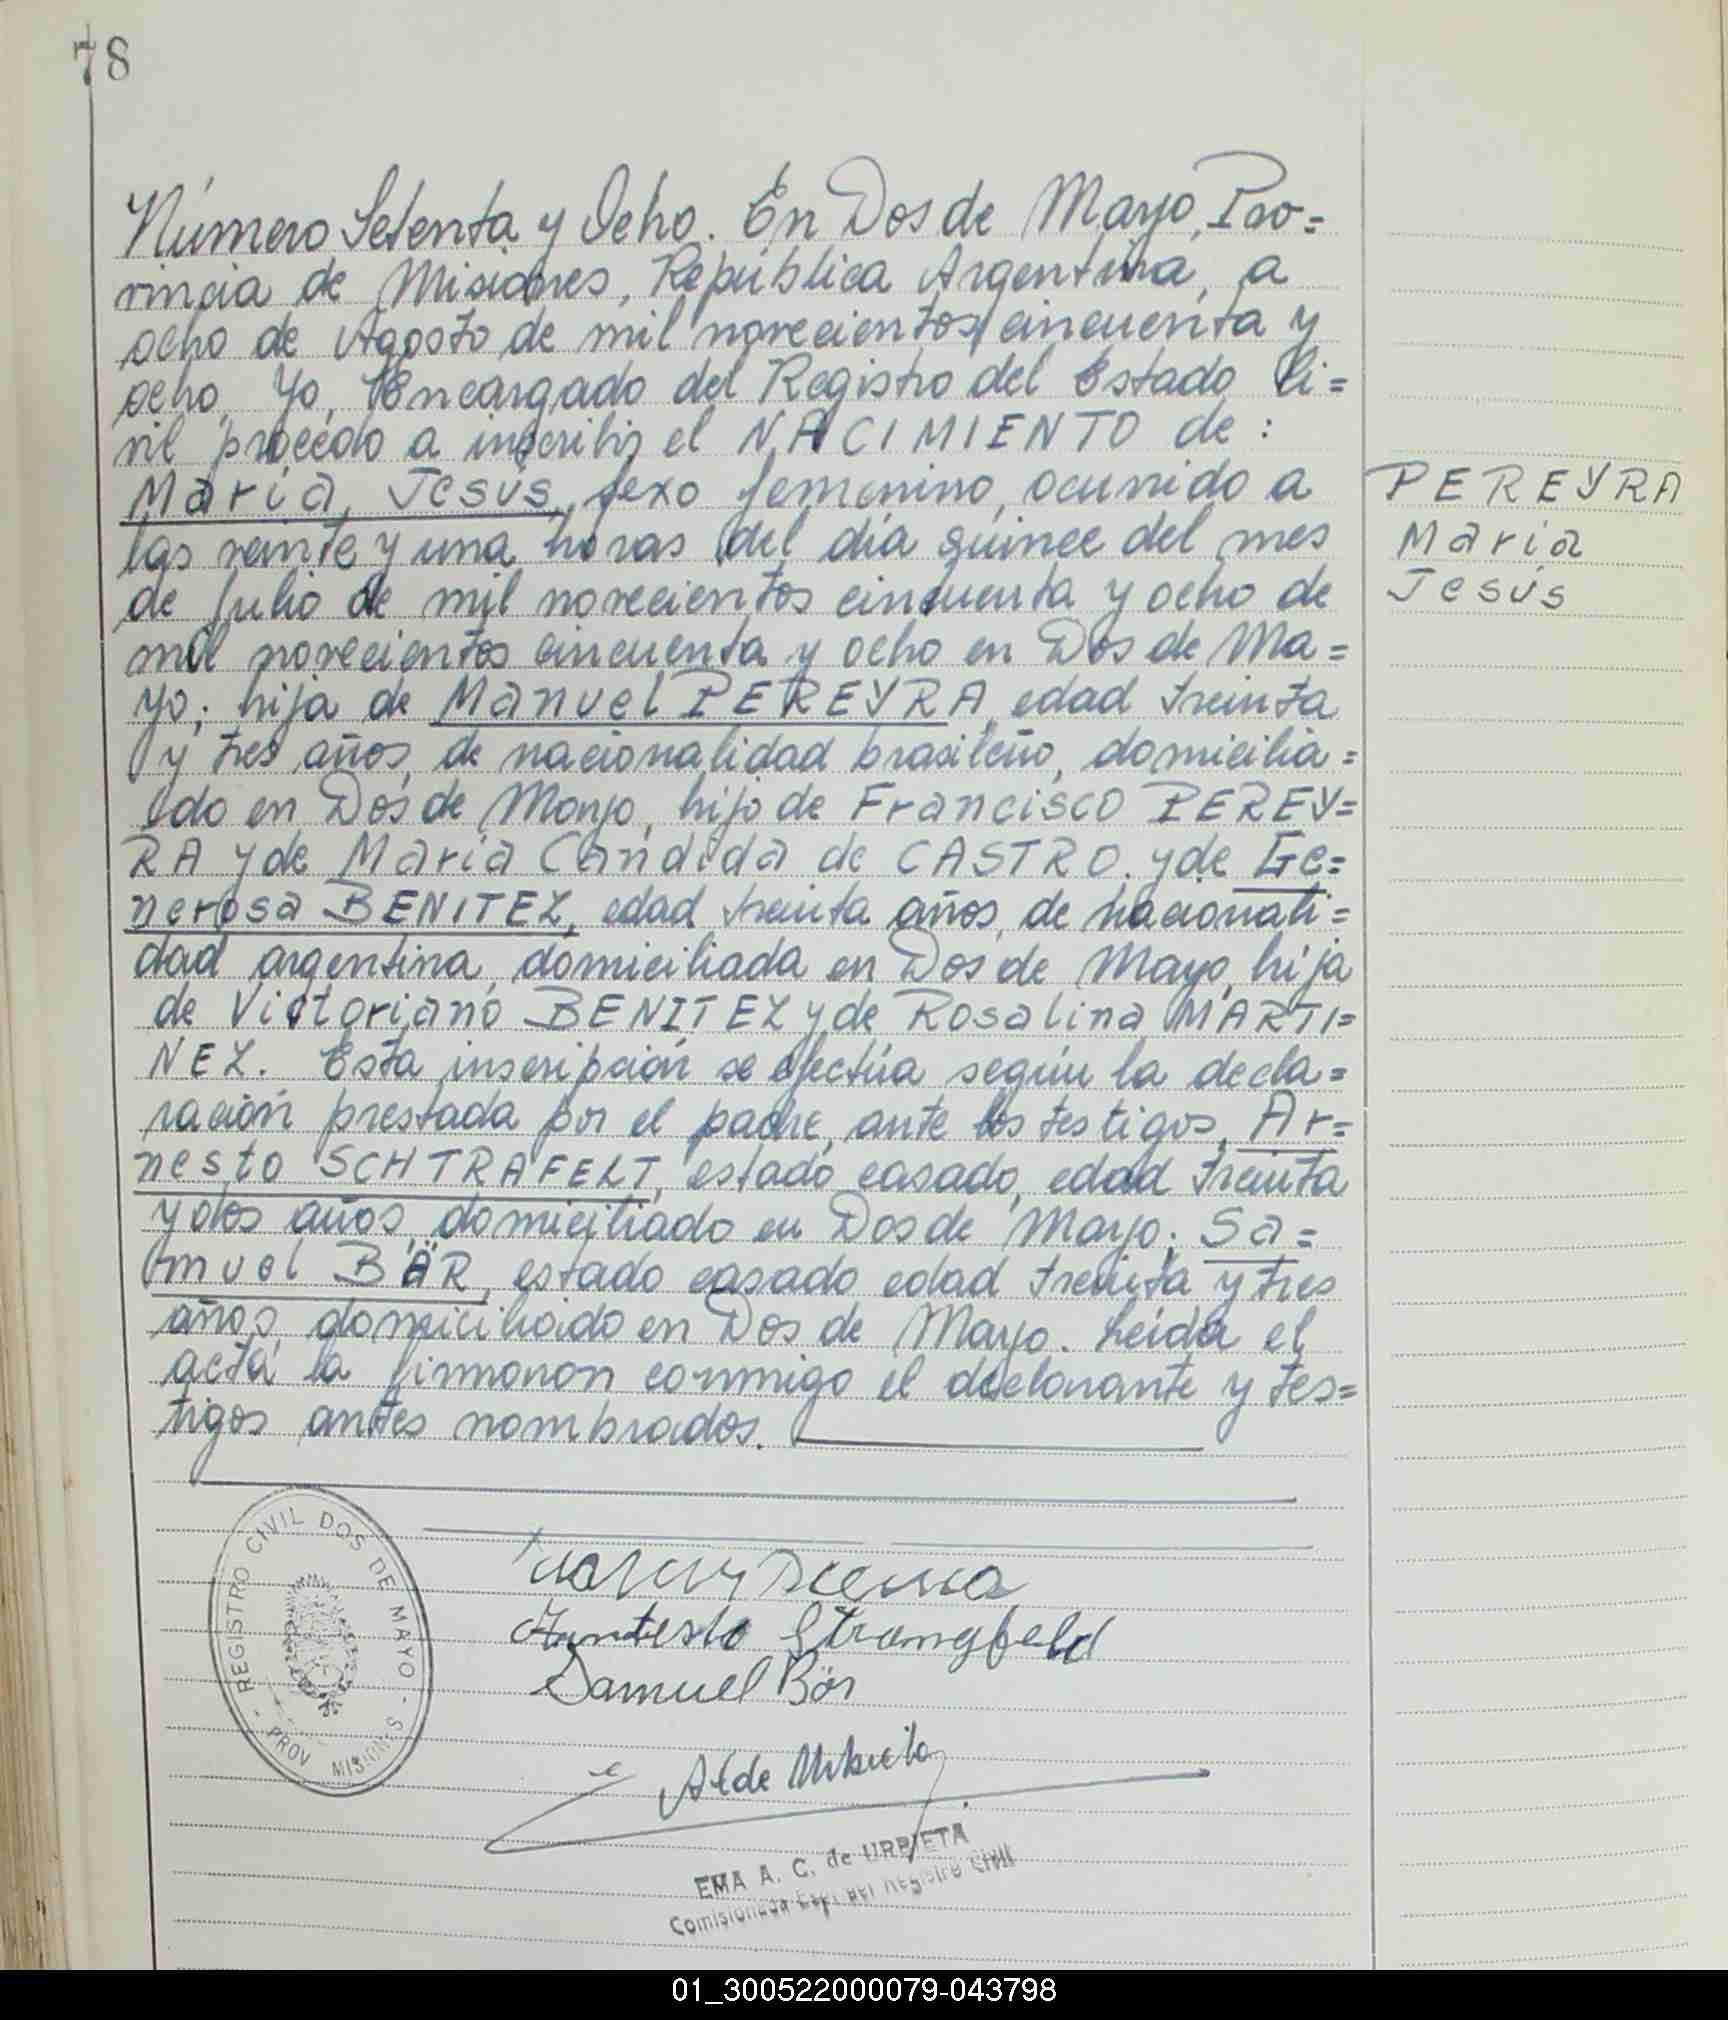 78
Número Setenta y Ocho. En Dos de Mayo, Pro=
vincia de Misiones, República Argentina, a
ocho de Agosto de mil novecientos cincuenta y
ocho, Yo, Encargado del Registro del Estado Ci=
vil procedo a inscribir el NACIMIENTO de:
María Jesús, sexo femenino, ocurrido a
las veinte y una horas del día quince del mes
de Julio de mil novecientos cincuenta y ocho de
mil novecientos cincuenta y ocho en Dos de Ma=
yo; hija de Manuel PEREYRA, edad treinta
y tres años, de nacionalidad brasileño, domicilia=
do en Dos de Mayo, hijo de Francisco PEREY=
RA y de María Candida de CASTRO. y de Ge=
nerosa BENITEZ, edad treinta años, de nacionali=
dad argentina, domiciliada en Dos de Mayo, hija
de Victoriano BENITEZ y de Rosalina MARTI=
NEZ. Esta inscripción se efectúa según la decla=
ración prestada por el padre, ante los testigos, Ar=
nesto SCHTRAFELT, estado casado, edad treinta
y dos años, domiciliado en Dos de Mayo; Sa=
muel BÄR, estado casado edad treinta y tres
años domiciliado en Dos de Mayo. Leída el
acta la firmaron conmigo el declarante y tes=
tigos antes nombrados.
PEREYRA
María
Jesús
REGISTRO CIVIL DOS DE MAYO - PROV MISIONES -
Samuel Bär
A C de Urbieta
EMA A. C. de URBIETA
Comisionada Esp. del Registro Civil
01_300522000079-043798